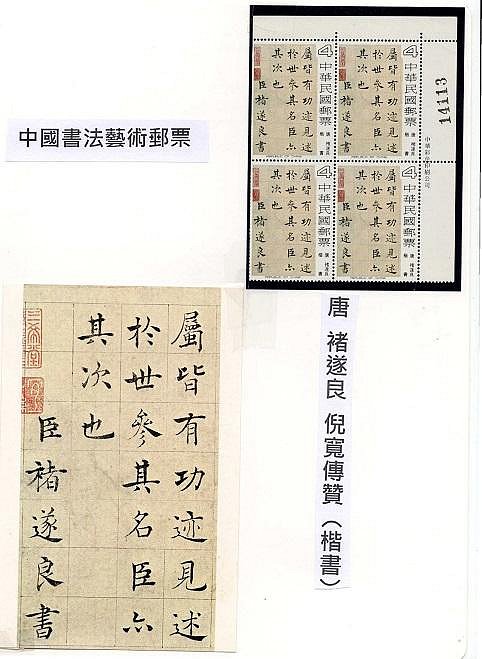 中國書法藝術郵票
14113
中華彩色印刷公司
4
中華民國郵票
唐 褚遂良 楷書
屬皆有功迹見述
於世參其名臣亦
其次也
臣褚遂良書
4
中華民國郵票
唐 褚遂良 楷書
屬皆有功迹見述
於世參其名臣亦
其次也
臣褚遂良書
4
中華民國郵票
唐 褚遂良 楷書
屬皆有功迹見述
於世參其名臣亦
其次也
臣褚遂良書
4
中華民國郵票
唐 褚遂良 楷書
屬皆有功迹見述
於世參其名臣亦
其次也
臣褚遂良書
唐 褚遂良 倪寬傳贊（楷書）
屬皆有功迹見述
於世參其名臣亦
其次也
臣褚遂良書
三希堂